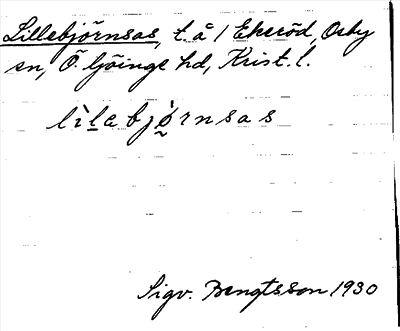 Lillebjörnsas, t. å 1 Ekeröd, Osby
sn, Ö. Göinge hd, Krist. l.
lìlebjö̀rnsas
Sigv. Bengtsson 1930